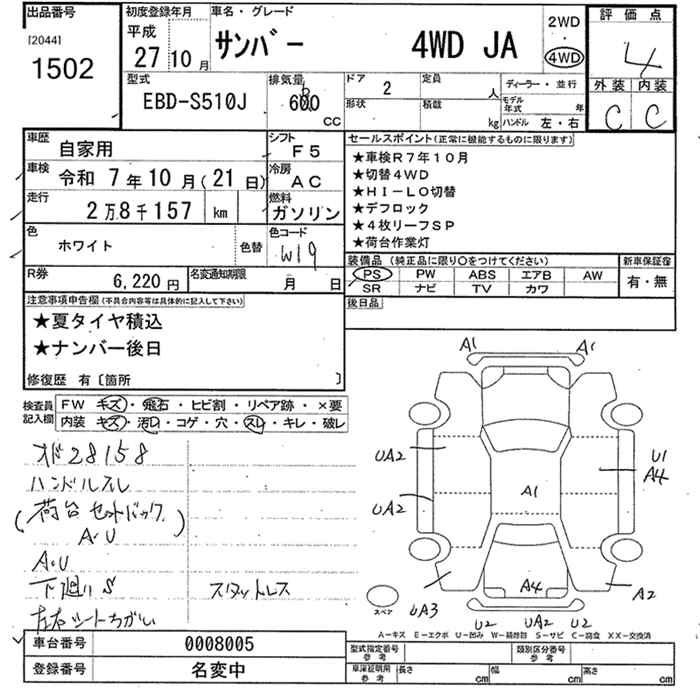 出品番号
[2044]
1502
初度登録年月
平成
27 10 月
車名・グレード
サンバー 4WD JA
2WD
4WD
評価点
4
外装 内装
C C
型式
EBD-S510J
排気量
660
CC
ドア
2
定員
人
形状
積載
kg
ディーラー・並行
モデル年式 年
ハンドル 左・右
車歴
自家用
シフト
F5
車検
令和 7年10月(21日)
冷房
AC
走行
2万8千157 km
燃料
ガソリン
色
ホワイト
色替
色コード
W19
R券
6,220円
名変通知期限
月 日
セールスポイント(正常に機能するものに限ります)
★車検R7年10月
★切替4WD
★HI-LO切替
★デフロック
★4枚リーフSP
★荷台作業灯
装備品(純正品に限り○をつけてください)
新車保証書
PS PW ABS エアB AW
SR ナビ TV カワ
有・無
後日品
注意事項申告欄(不具合内容等は具体的に記入して下さい)
★夏タイヤ積込
★ナンバー後日
修復歴 有〔箇所 〕
検査員
記入欄
FW キズ・飛石・ヒビ割・リペア跡・×要
内装 キズ・汚れ・コゲ・穴・スレ・キレ・破レ
オド28158
ハンドルスレ
(荷台セットバック)
A・U
A・U
下廻りS スタットレス
左右シートちがい
A1 A1
UA2
U1
A4
UA2
A1
A4
UA3
A2
U2 UA2 U2
スペア
A-キズ E-エクボ U-凹み W-補修跡 S-サビ C-腐食 XX-交換済
車台番号
0008005
登録番号
名変中
型式指定番号
参考
類別区分番号
参考
車庫証明用
参考
長さ cm
幅 cm
高さ cm